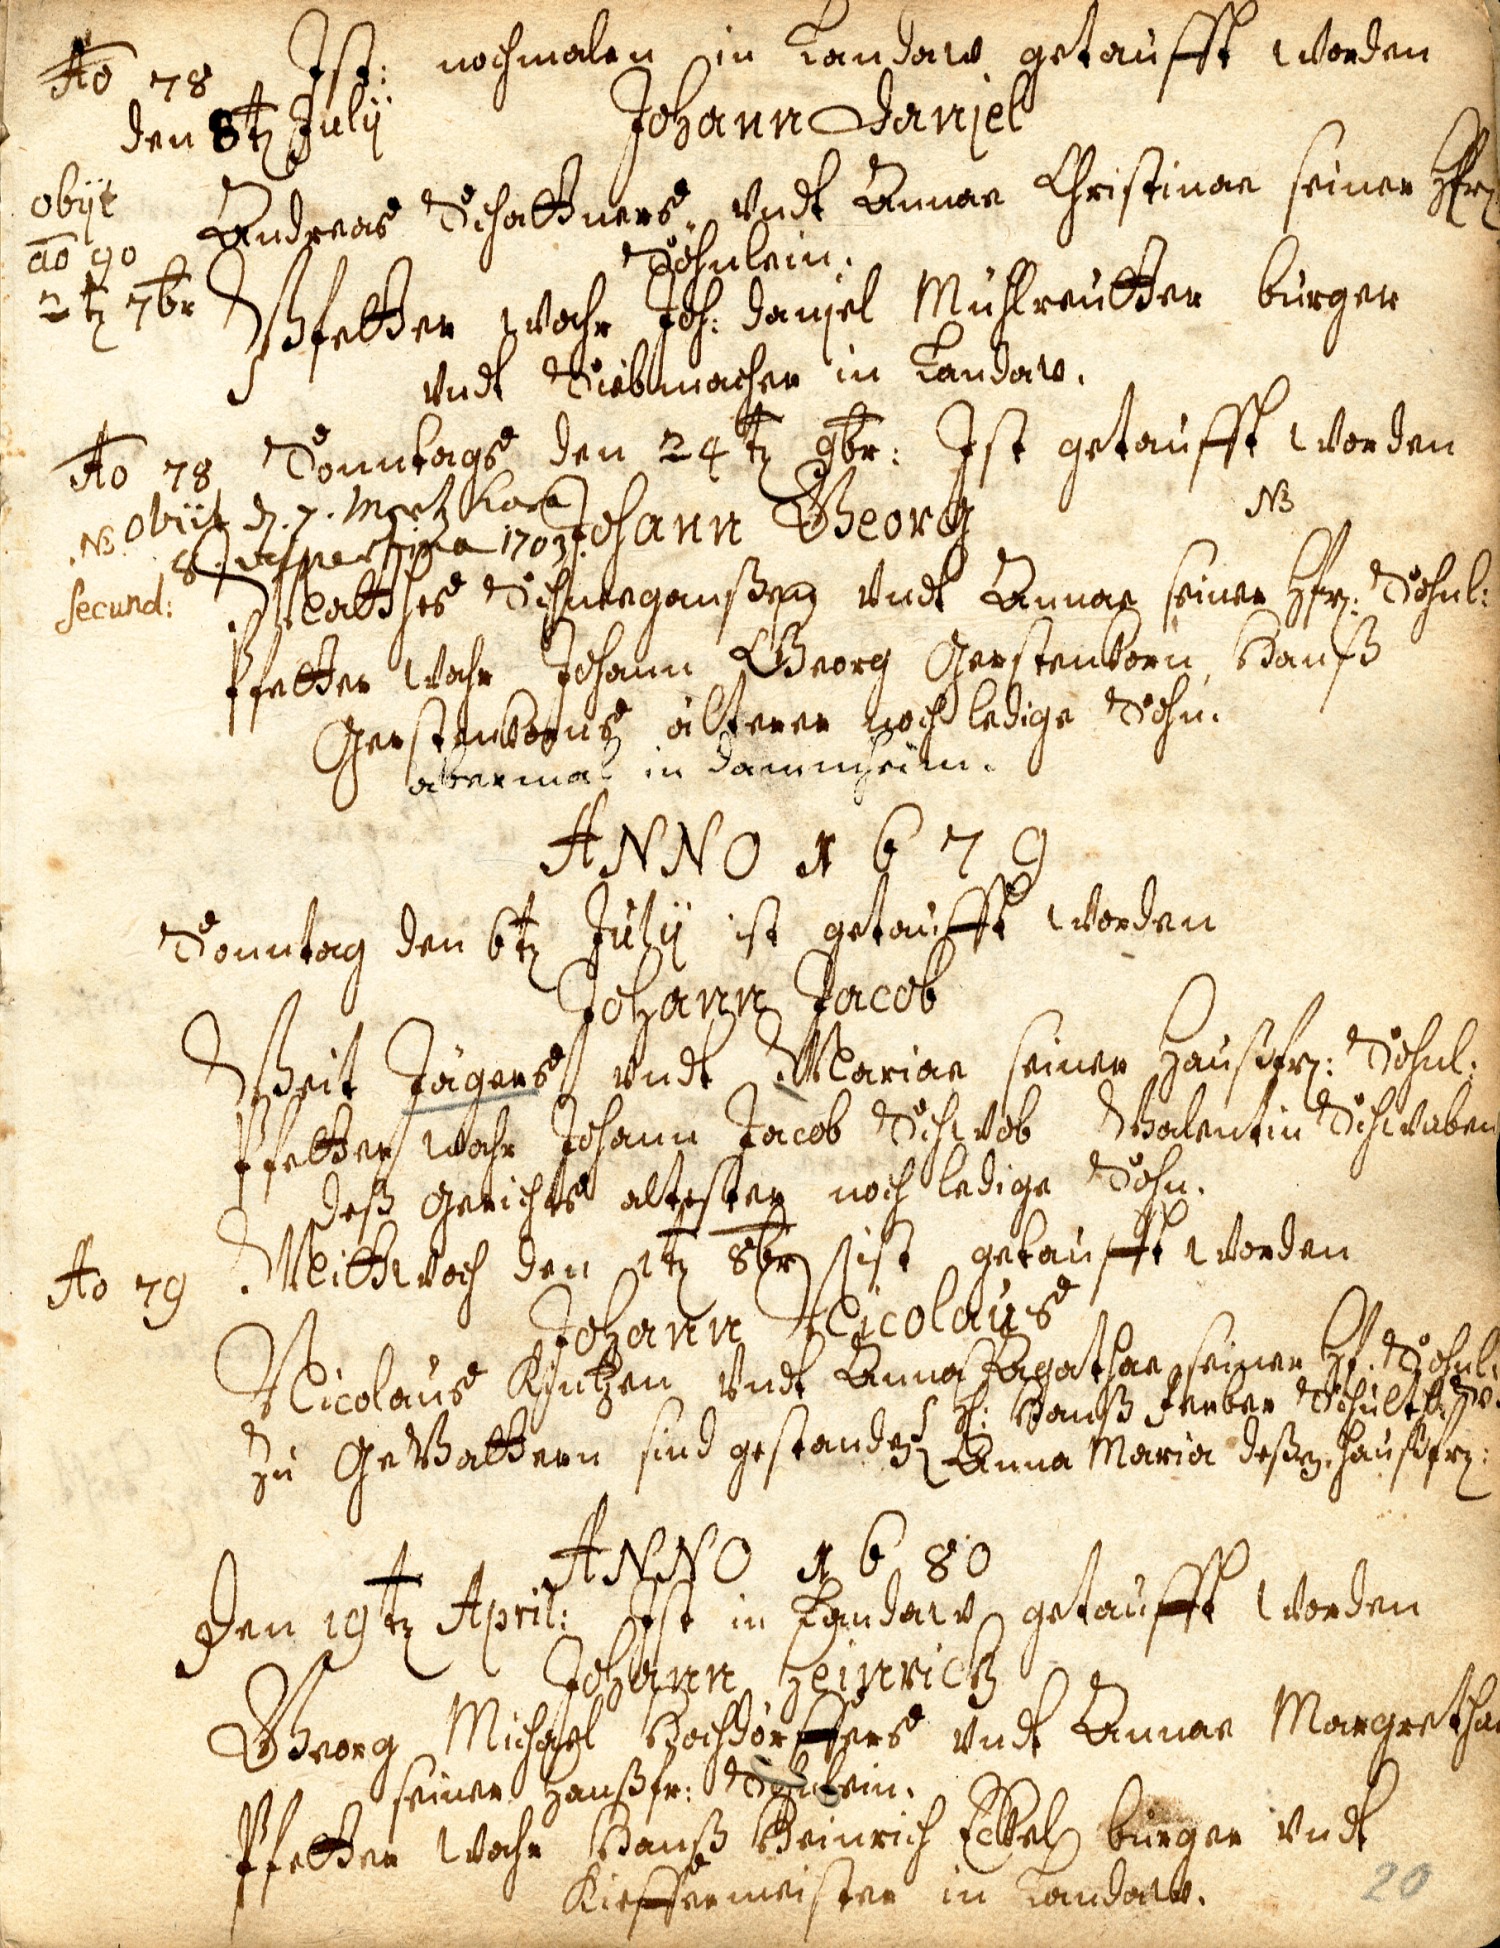 Ao 78 Ist: nochmalen in Landaw getaufft worden
den 8t July Johann Danjel
obijt
ao 90
2t 7br
Andreas Schattners, vndt Annae Christinae seiner Hfr.
Söhnlein.
Pfetter wahr Joh: Danjel Mühlreutter burger
vndt Siebmacher in Landaw.
Ao 78 Sonntags den 24t 9br: Ist getaufft worden
NB obijt d. 7. Martz
8. vespertina 1703.
Johann Georg NB
secund:
Matthes Schneeganßen vndt Annae seiner Hfr: Söhnl:
Pfetter wahr Johann Georg Gerstenkorn, Hanß
Gerstenkorns älterer noch ledige Sohn.
abermal in Dammheim.
ANNO 1679
Sonntag den 6t July ist getaufft worden
Johann Jacob
Veit Jägers vndt Mariae seiner Haußfr: Söhnl:
Pfetter wahr Johann Jacob Schwob Valentin Schwaben
deß Gerichts altester noch ledige Sohn.
Ao 79 Mittwoch den 1t 8br ist getaufft worden
Johann Nicolaus
Nicolaus Kuntzen vndt Anna Agathae seiner Hf. Söhnl:
Zu Gevattern sind gestanden H: Hanß Ferber Schulth:
Anna Maria deßen Haußfr:
ANNO 1680
Den 19t April: Ist in Landaw getaufft worden
Johann Heinrich
Georg Michael Hochdörffers vndt Annae Margrethae
seiner Haußfr: Söhnlein.
Pfetter wahr Hanß Heinrich Eckel burger vndt
Kieffermeister in Landaw.
20